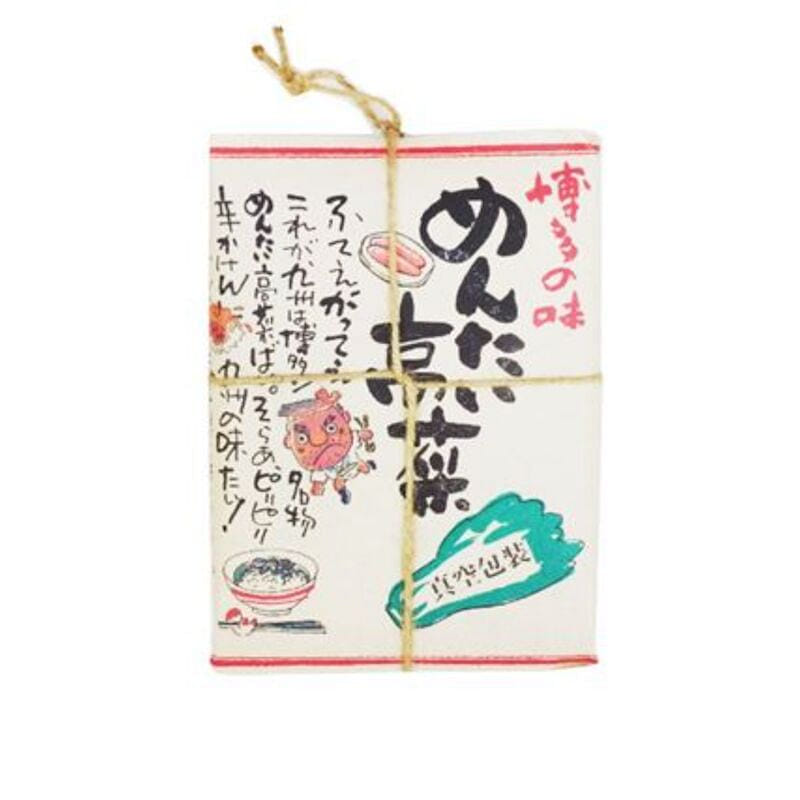 博多の味
めんたい
高菜
ふてえがってえ
これが、九州は博多ン 名物
めんたい高菜ばい。そらあ、ピリピリ
辛かけんに 九州の味たい!
真空包装